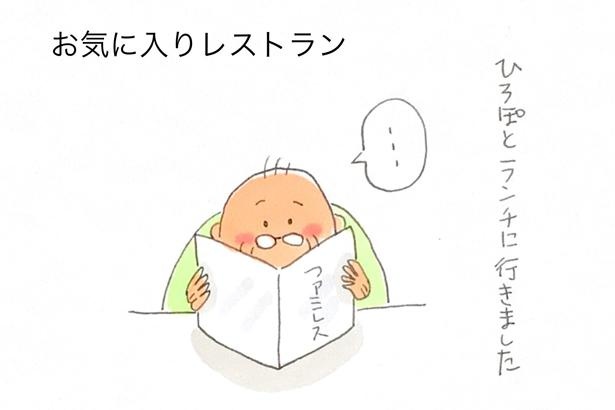 お気に入りレストラン
ひろぽとランチに行きました
・・・
ファミレス